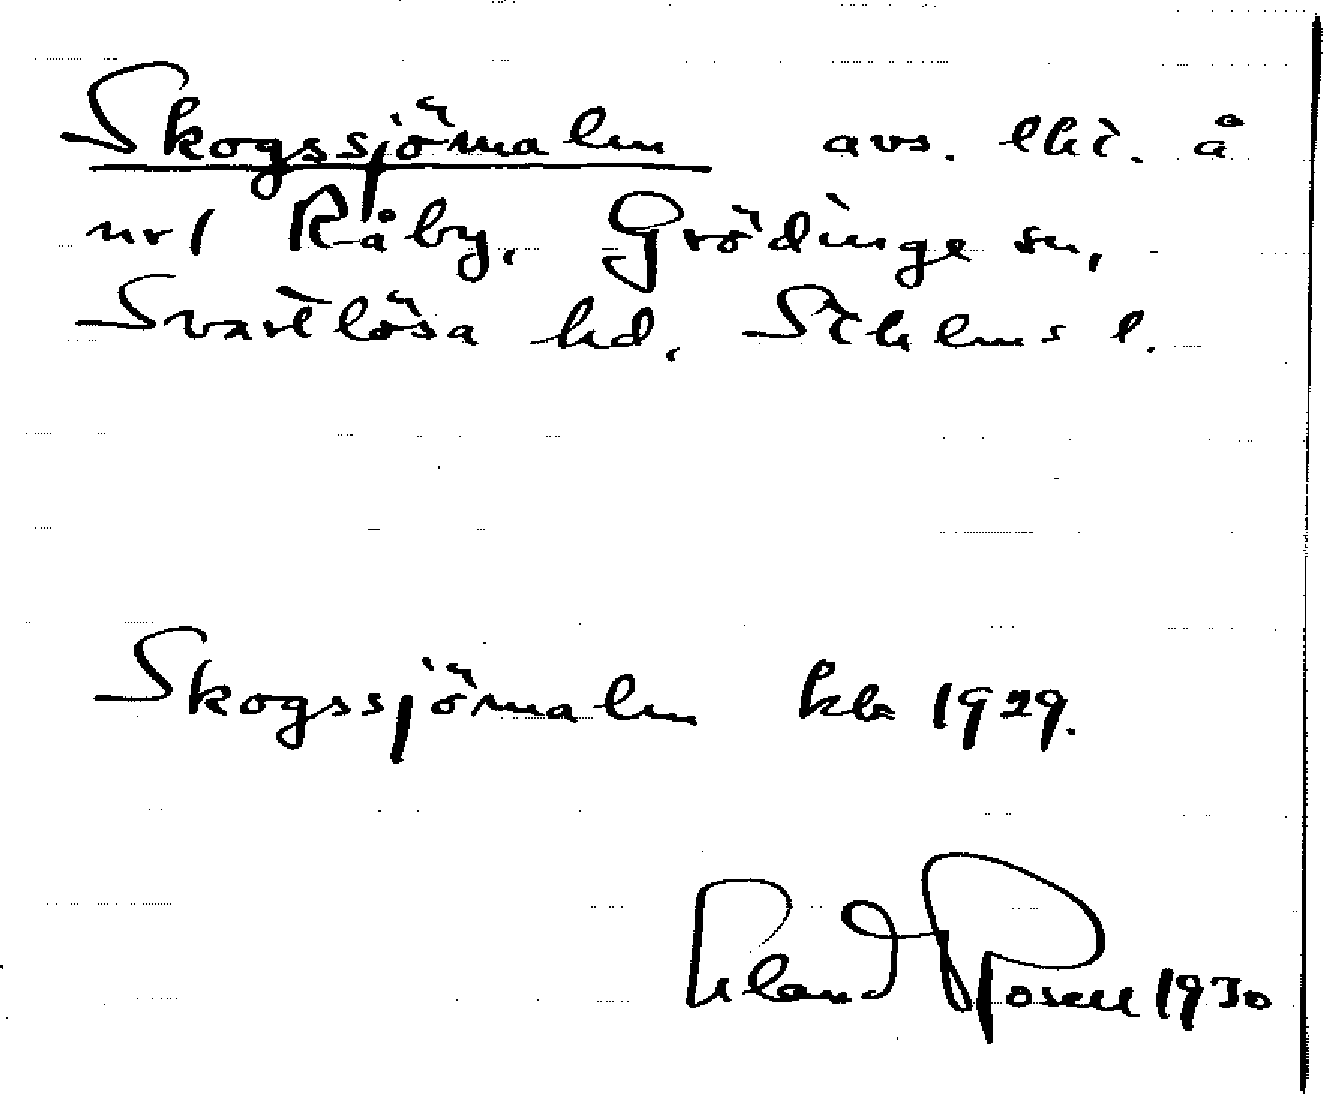 Skogssjömalm avs. lht. å
nr 1 Råby, Grödinge sn,
Svartlösa hd, Sthlms l.
Skogssjömalm kba 1929.
Erland Rosell 1930